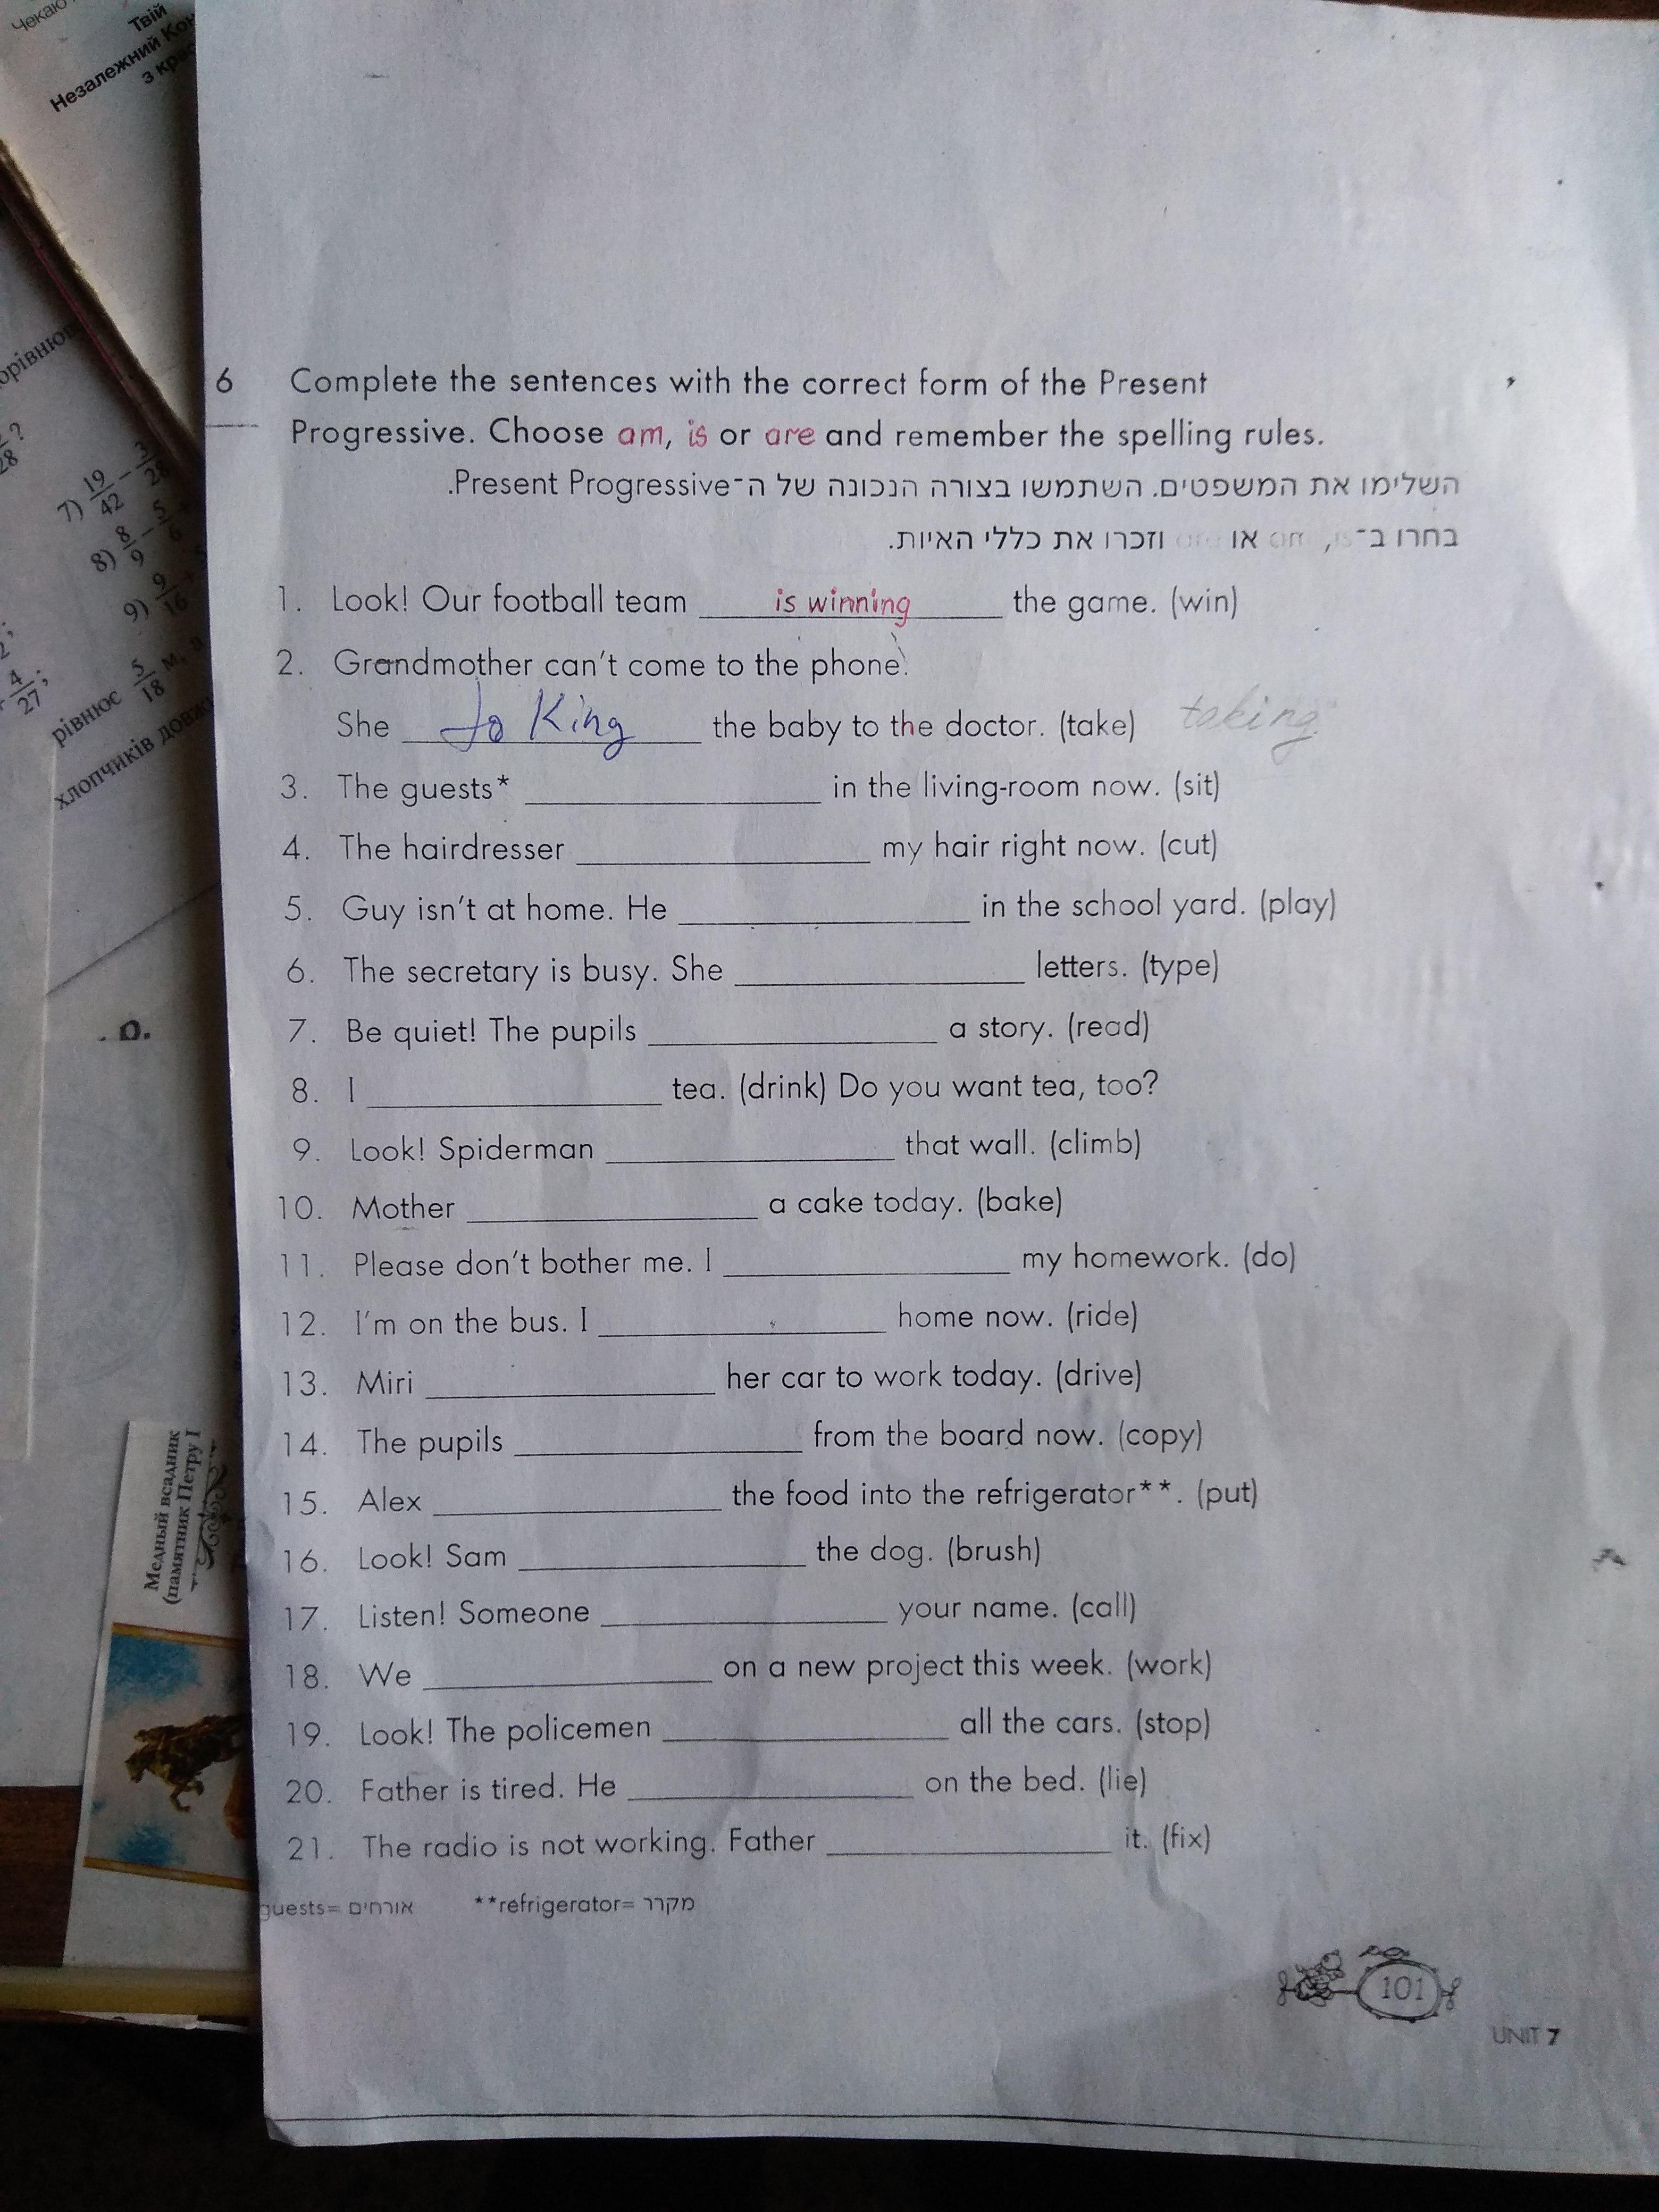 Чекаю
Твій
Незалежний Кон
з кре
орівнює
7) 19/42 − 3/28
8) 8/9 − 5/6
9) 9/16
4/27;
рівнює 5/18 м, а
хлопчиків довж
Медный всадник
(памятник Петру I
6 Complete the sentences with the correct form of the Present
Progressive. Choose am, is or are and remember the spelling rules.
השלימו את המשפטים. השתמשו בצורה הנכונה של ה־Present Progressive.
בחרו ב־is, am או are וזכרו את כללי האיות.
1. Look! Our football team is winning the game. (win)
2. Grandmother can't come to the phone.
She to King the baby to the doctor. (take) taking
3. The guests* ____ in the living-room now. (sit)
4. The hairdresser ____ my hair right now. (cut)
5. Guy isn't at home. He ____ in the school yard. (play)
6. The secretary is busy. She ____ letters. (type)
7. Be quiet! The pupils ____ a story. (read)
8. I ____ tea. (drink) Do you want tea, too?
9. Look! Spiderman ____ that wall. (climb)
10. Mother ____ a cake today. (bake)
11. Please don't bother me. I ____ my homework. (do)
12. I'm on the bus. I ____ home now. (ride)
13. Miri ____ her car to work today. (drive)
14. The pupils ____ from the board now. (copy)
15. Alex ____ the food into the refrigerator**. (put)
16. Look! Sam ____ the dog. (brush)
17. Listen! Someone ____ your name. (call)
18. We ____ on a new project this week. (work)
19. Look! The policemen ____ all the cars. (stop)
20. Father is tired. He ____ on the bed. (lie)
21. The radio is not working. Father ____ it. (fix)
guests= אורחים **refrigerator= מקרר
101
UNIT 7